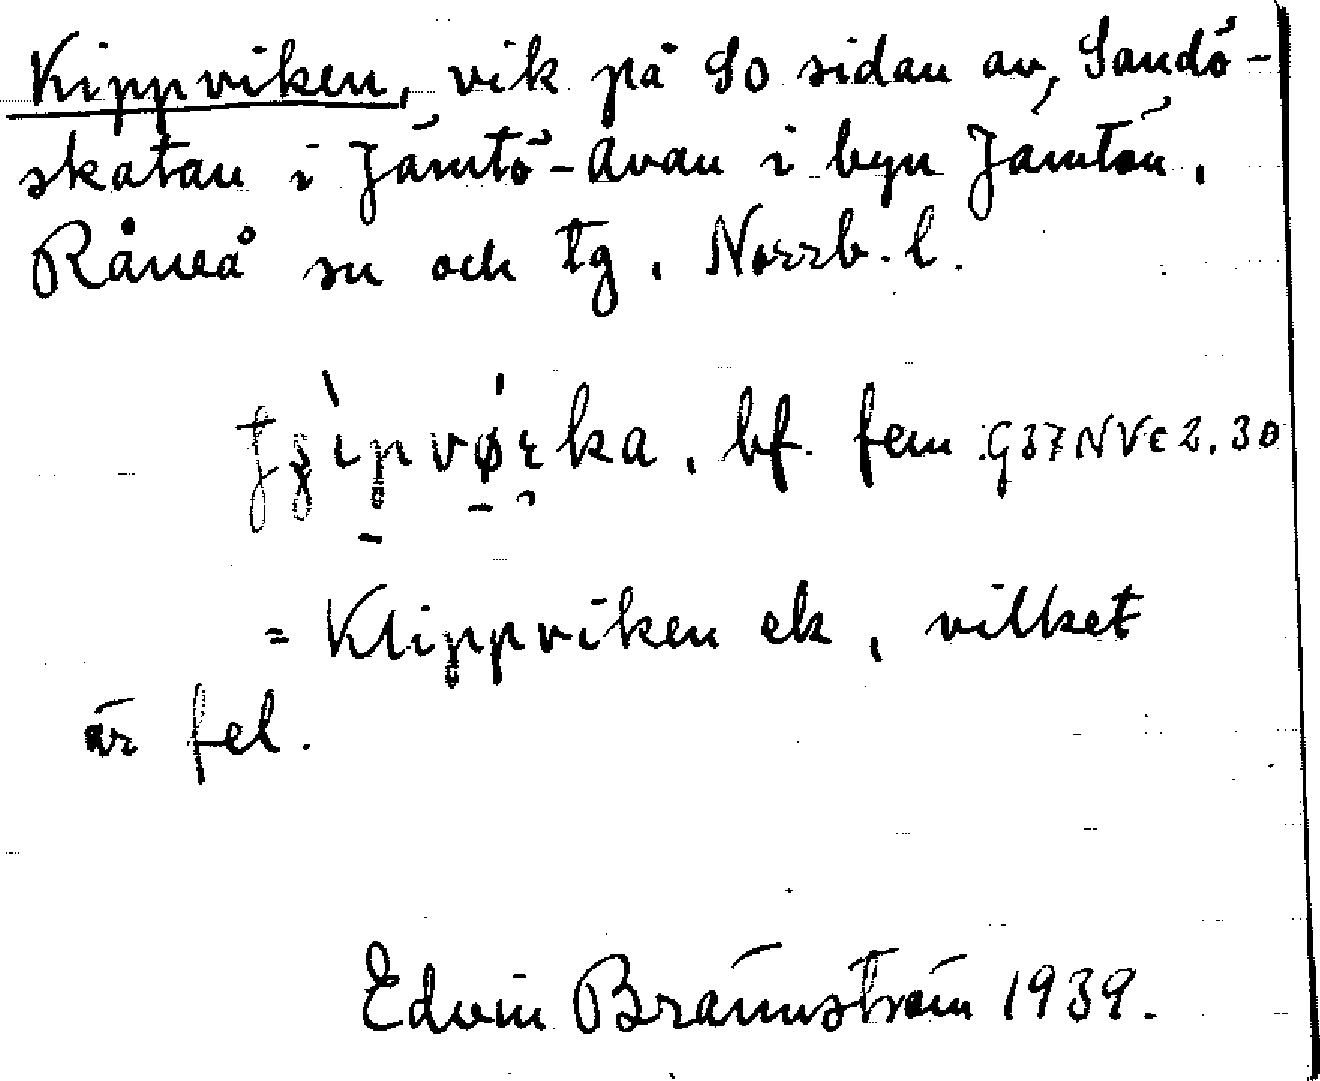 Kippviken, vik på SO sidan av, Sandö-
skatan i Jämtö-Avan i byn Jämtön,
Råneå sn och tg, Norrb. l.
bf. fem G37NVc2.30
= Klippviken ek, vilket
är fel.
Edvin Brännström 1939.